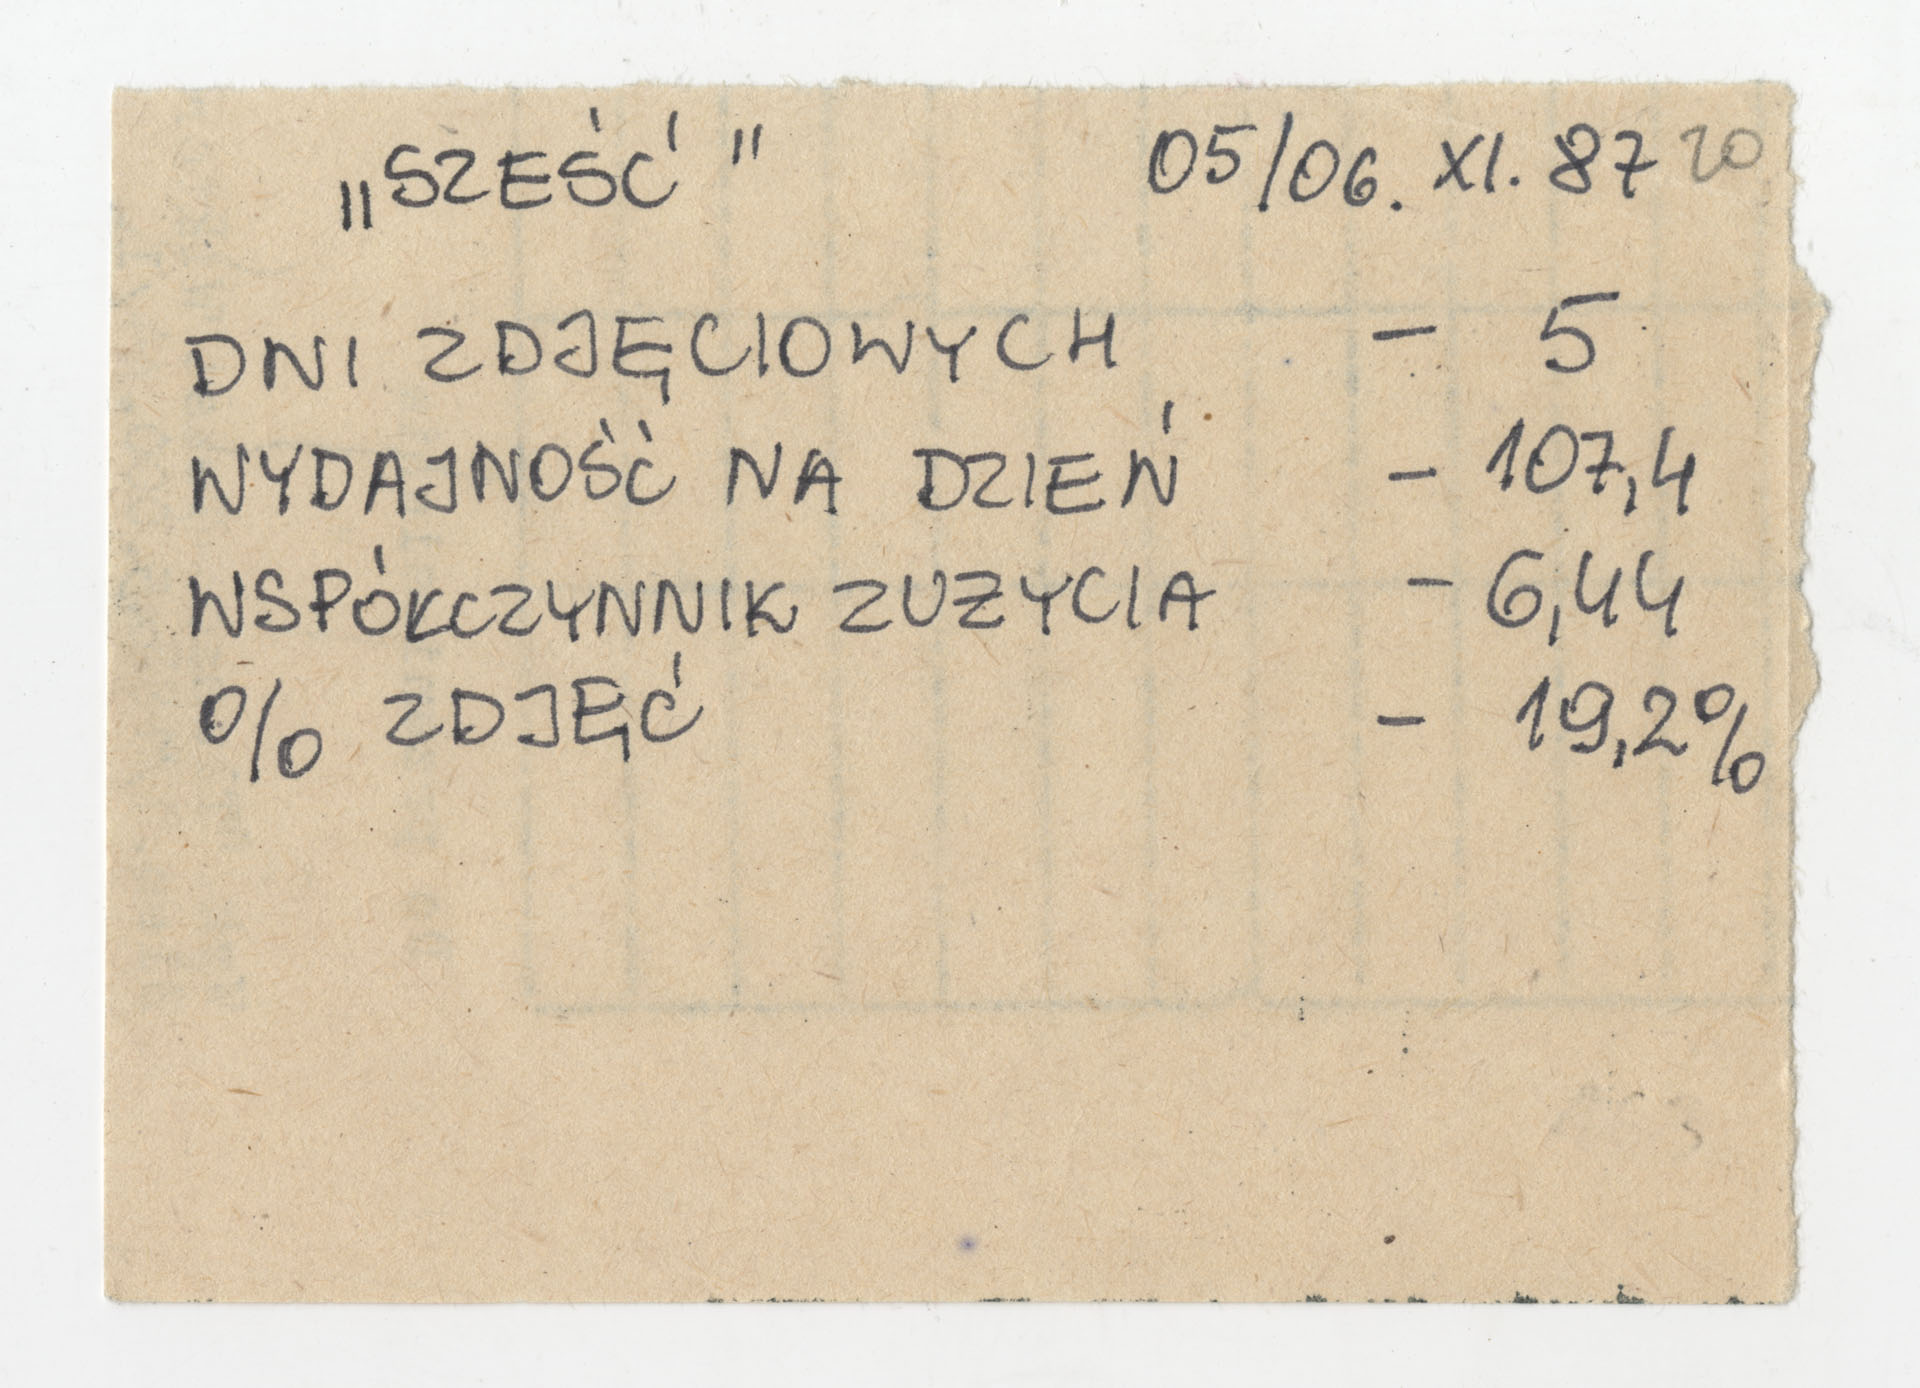 „SZEŚĆ" 05/06. XI. 87 20
DNI ZDJĘCIOWYCH – 5
WYDAJNOŚĆ NA DZIEŃ – 107,4
WSPÓŁCZYNNIK ZUŻYCIA – 6,44
% ZDJĘĆ – 19,2%